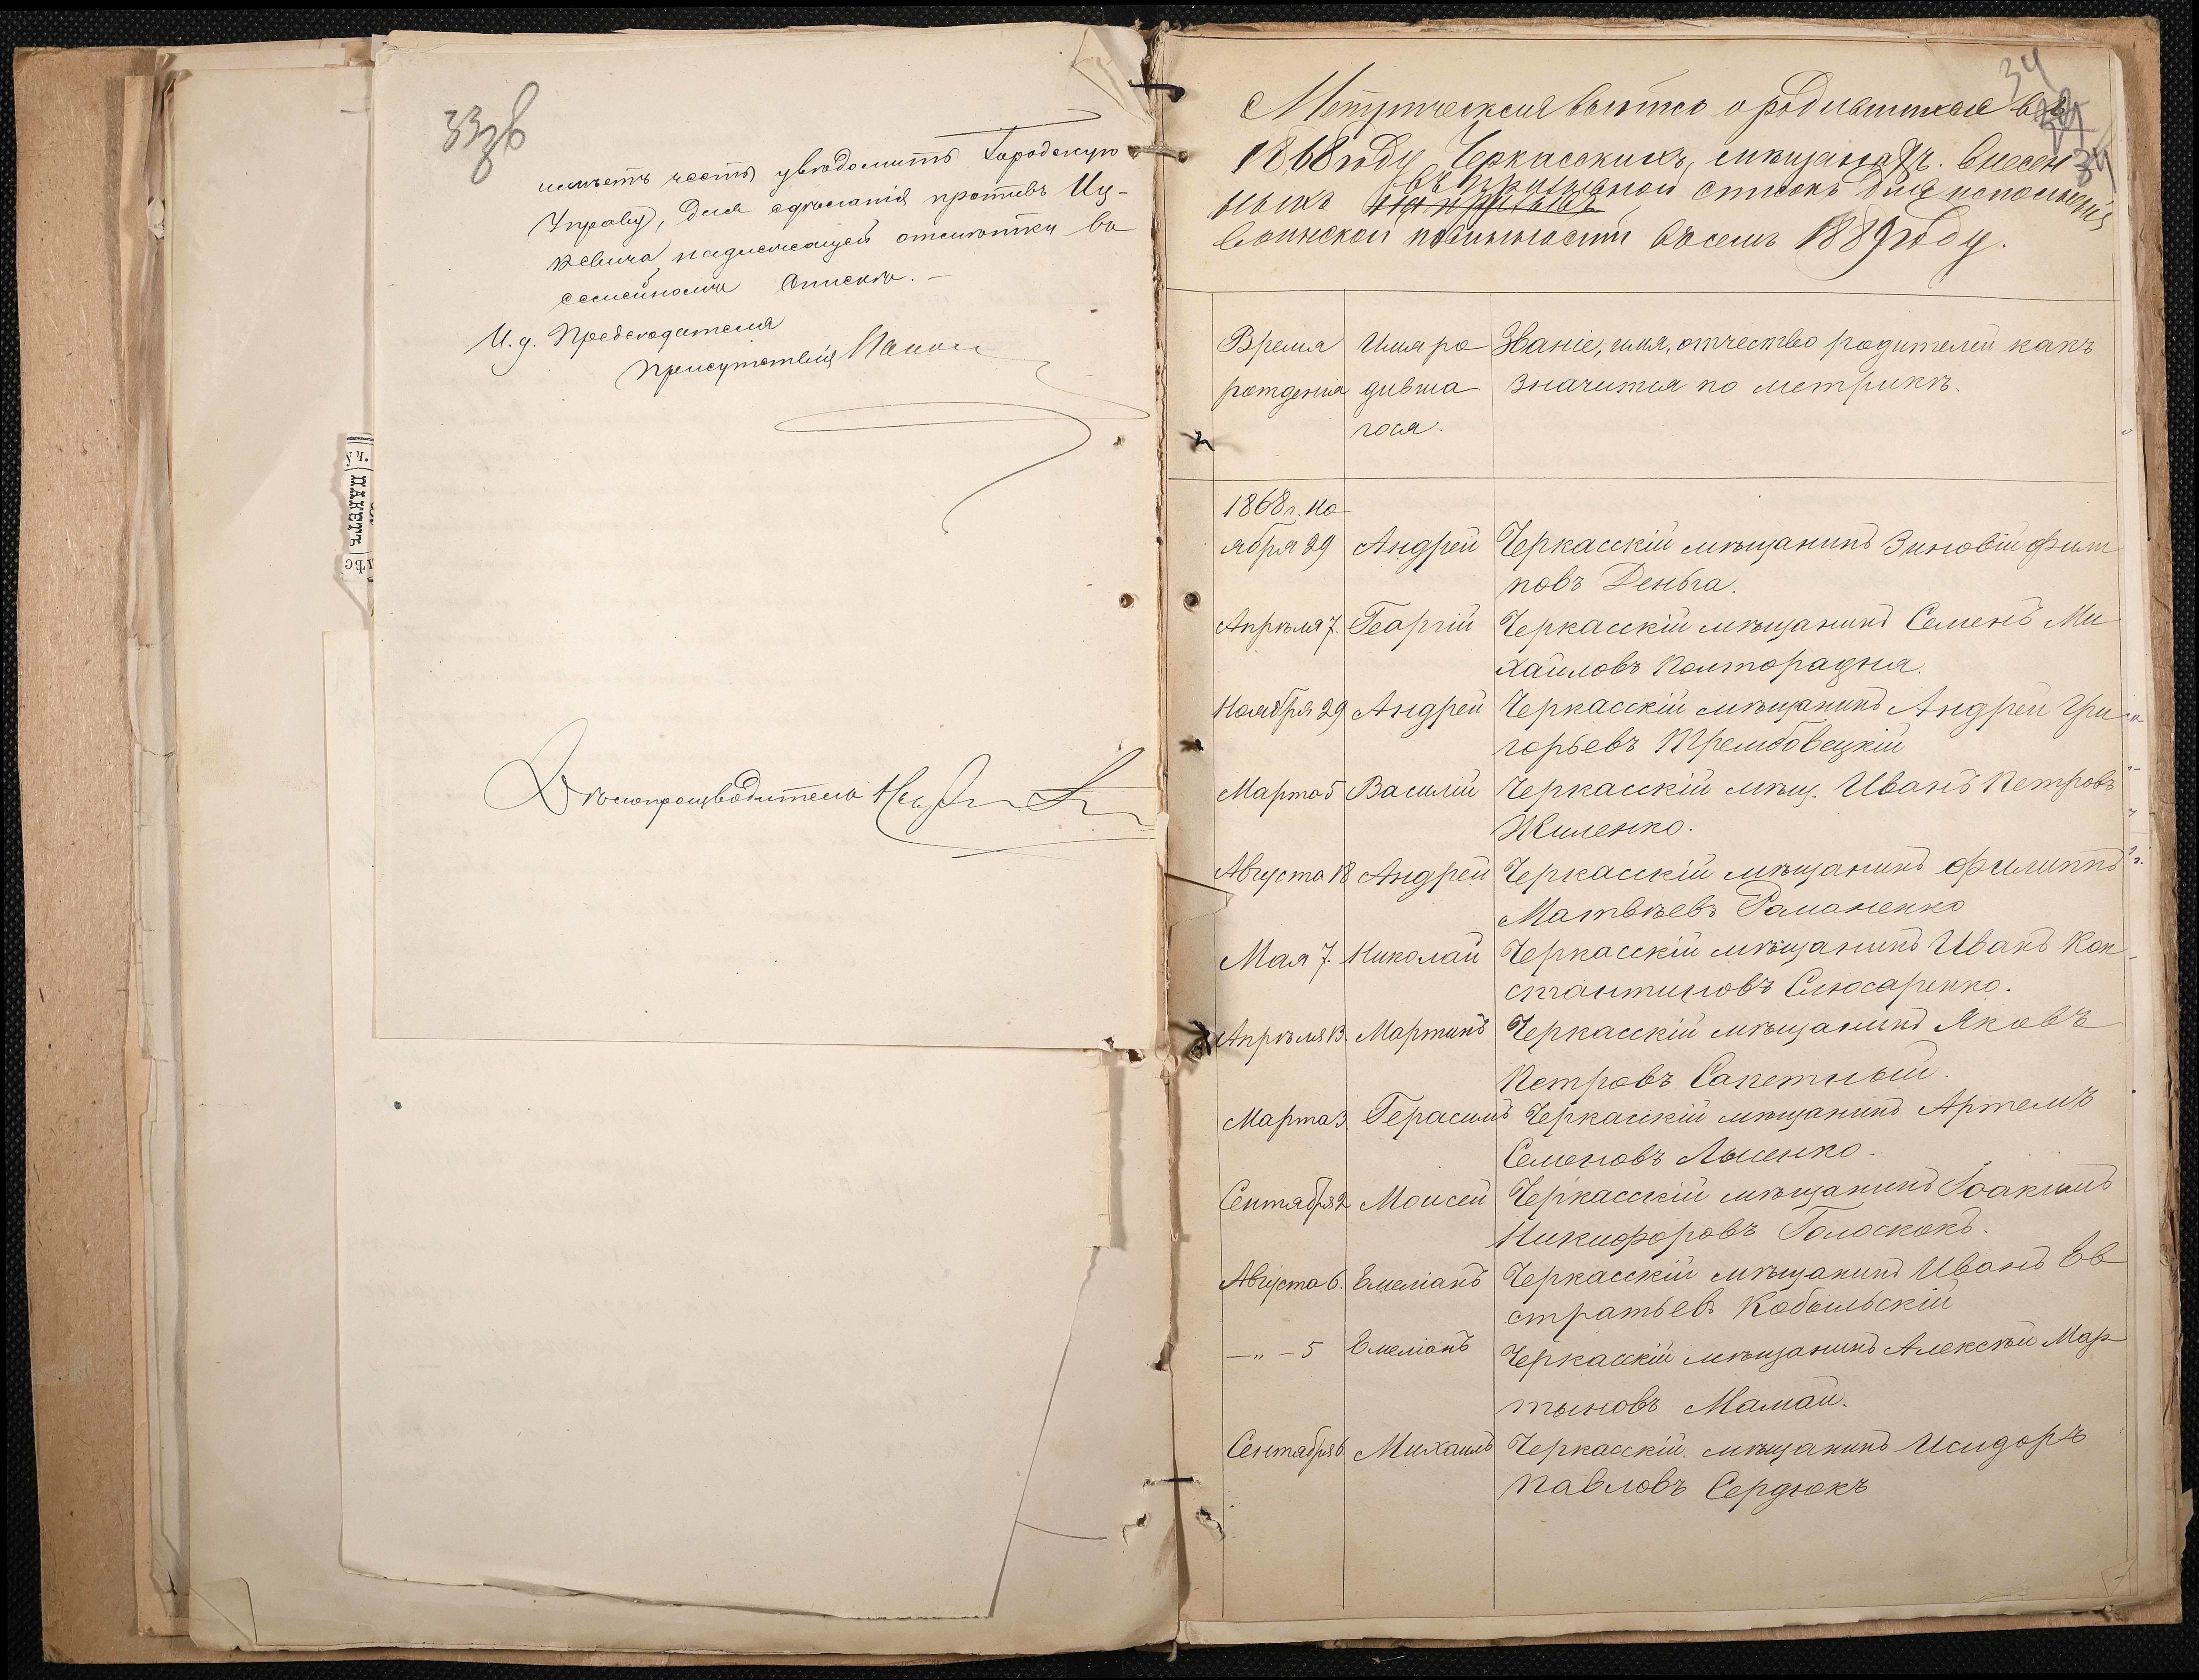 33 зв
имѣетъ честь увѣдомить Городскую
Управу, для сдѣланія противъ Иц-
кевича надлежащей отмѣтки въ
семейномъ спискѣ. —
И. д. Предсѣдателя
Присутствія
Дѣлопроизводитель
уч.
ПАКЕТЪ
34
34
Метрическая выпись о родившихся въ
1868 году Черкасскихъ, мѣщанахъ. внесен
ныхъ въ призывной списокъ для исполненія
воинской повинности въ семъ 1889 году.
Время Имя ро Званіе, имя, отчество родителей какъ
рожденія дивша значится по метрикѣ.
гося.
1868 г. но
ября 29 Андрей Черкасскій мѣщанинъ Зиновій Филип
повъ Деньга.
Апрѣля 7. Георгій Черкасскій мѣщанинъ Семенъ Ми
хайловъ Полторадня.
Ноября 29 Андрей Черкасскій мѣщанинъ Андрей Гри
горьевъ Трембовецкій
Марта 5 Василій Черкасскій мѣщ. Иванъ Петровъ
Жиленко.
Августа 18 Андрей Черкасскій мѣщанинъ Филиппъ
Матвѣевъ Романенко
Мая 7. Николай Черкасскій мѣщанинъ Иванъ Кон
стантиновъ Слюсаренко.
Апрѣля 13. Мартинъ Черкасскій мѣщанинъ Яковъ
Петровъ Сакетный.
Марта 3. Герасимъ Черкасскій мѣщанинъ Артемъ
Семеновъ Лысенко.
Сентября 2 Моисей Черкасскій мѣщанинъ Іоакимъ
Никифоровъ Голоскокъ.
Августа 6. Емеліанъ Черкасскій мѣщанинъ Иванъ Ев
стратьевъ Кобыльскій
— „ — 5 Емеліанъ Черкасскій мѣщанинъ Алексѣй Мар
тыновъ Мамай.
Сентября 6 Михаилъ Черкасскій мѣщанинъ Исидоръ
Павловъ Сердюкъ